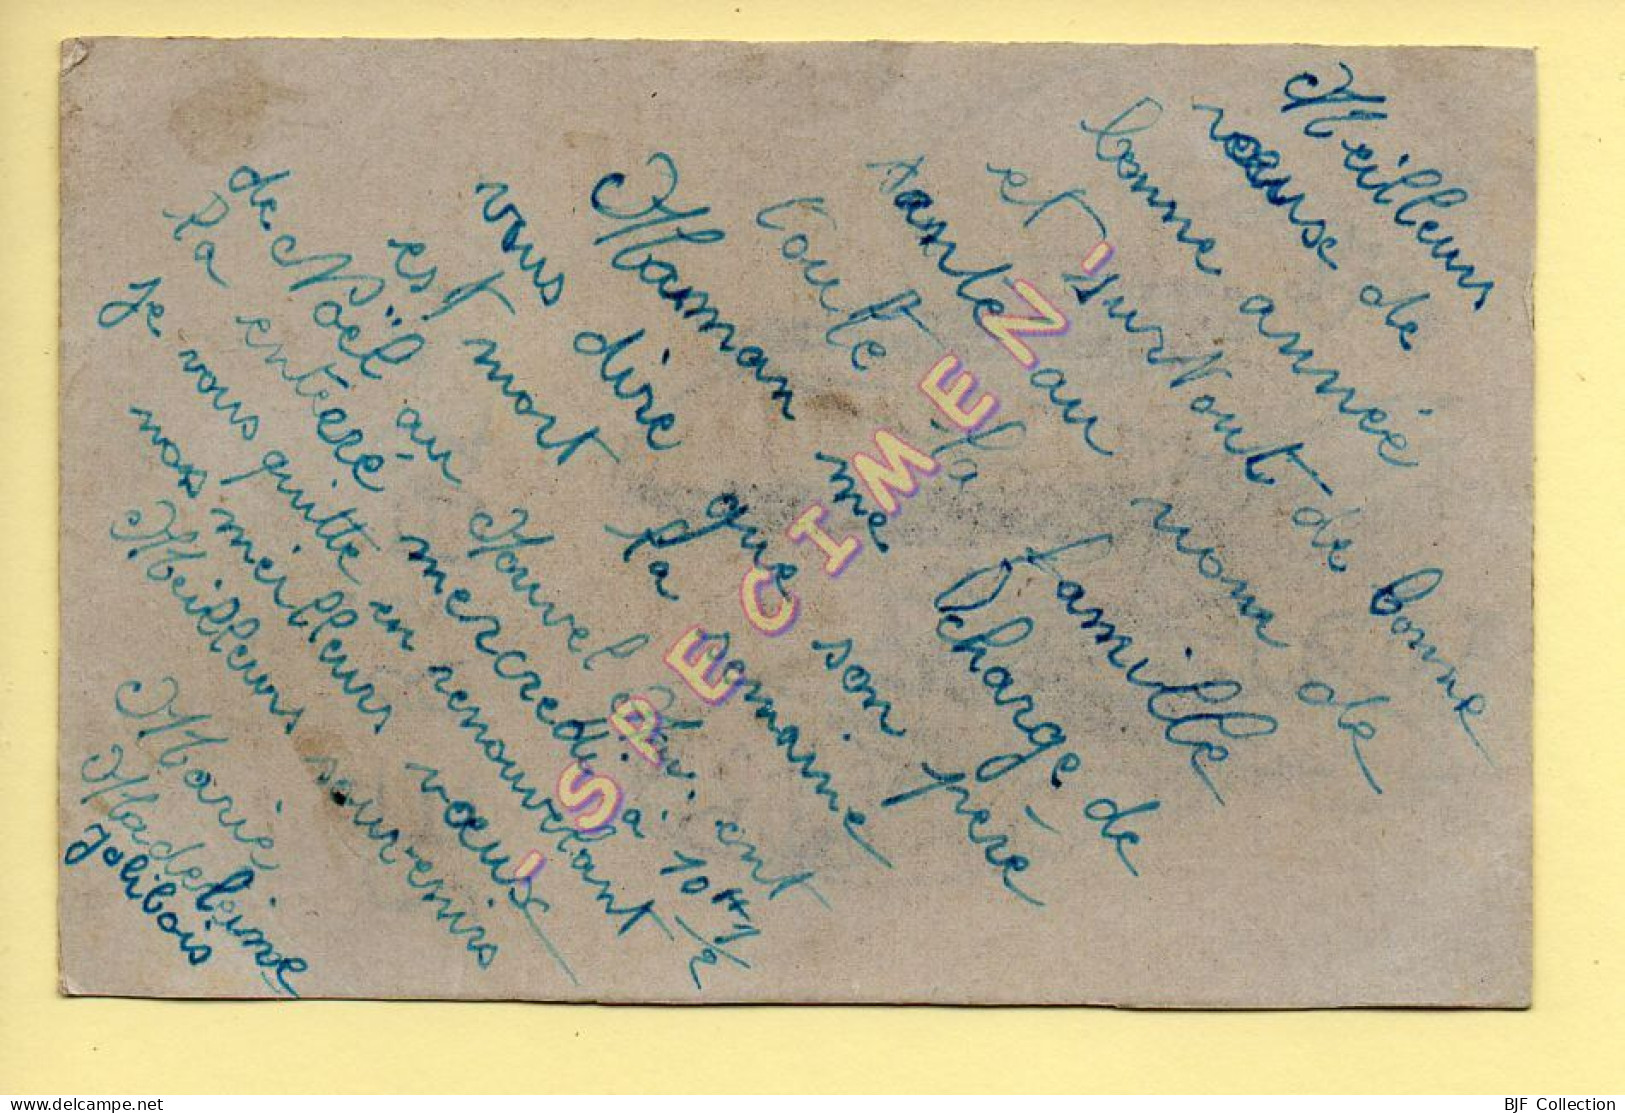 Meilleurs
vœux de
bonne année
et surtout de bonne
tante au nom de
toute la famille
Maman me charge de
vous dire que son père
est mort la semaine
de Noël au Nouvel An. ont
l'a entéré mercredi à 10 H 1/2
je vous quitte en renouvelant
nos meilleurs vœux
Meilleurs souvenirs
Marie
Madeleine
Jolibois
'SPECIMEN'
BJF Collection